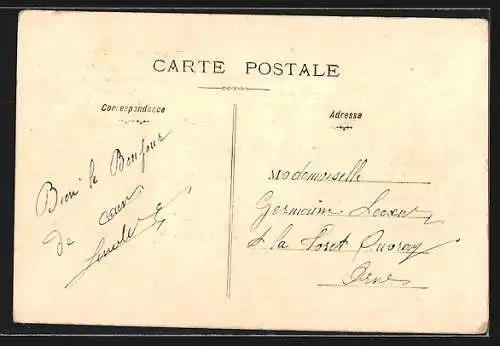 CARTE POSTALE
Correspondance
Adresse
Bien le Bonjour
de Caen
Mademoiselle
Germaine
à la Foret Auvray
Orne